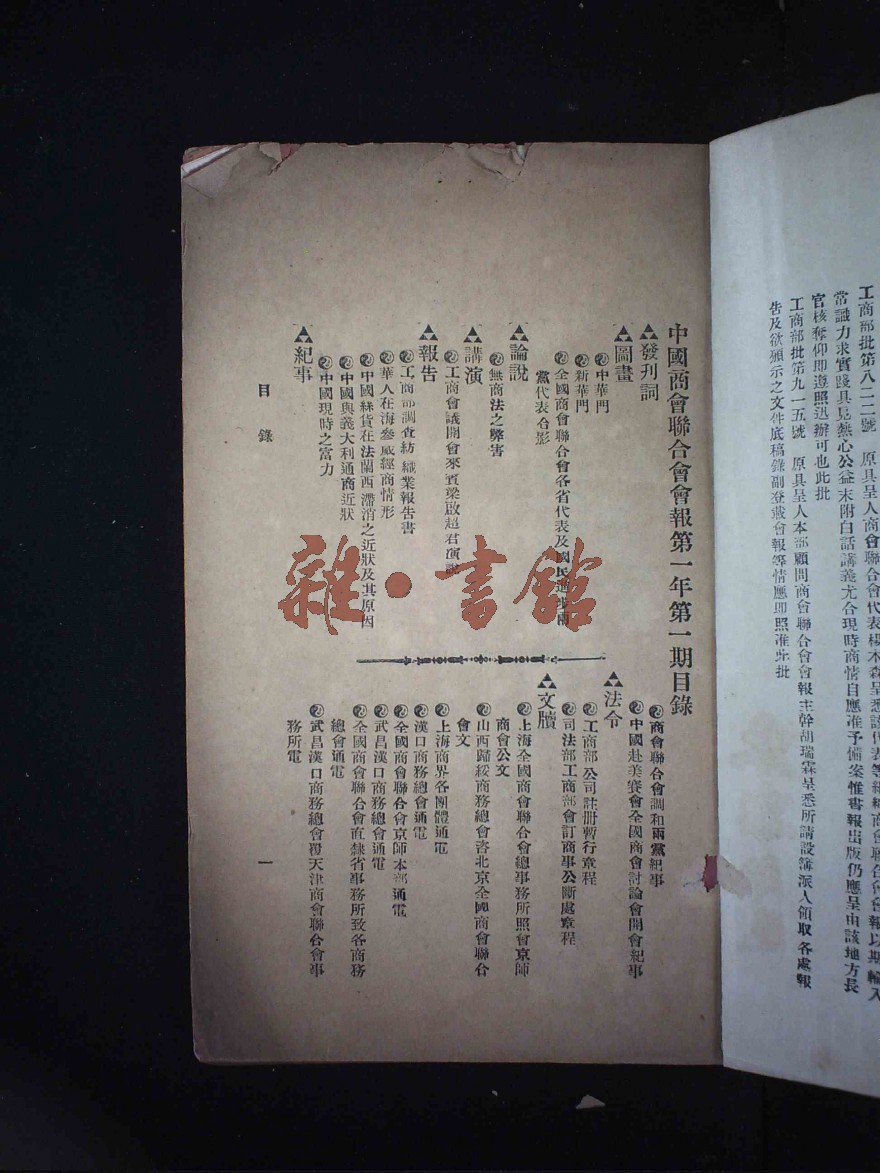 工商部批第八一二號　原具呈人商會聯合會代表楊木森呈悉該代表等組織商會聯合會會報以期輸入
常識力求實踐具見熱心公益末附白話講義尤合現時商情自應准予備案惟書報出版仍應呈由該地方長
官核奪仰即遵照迅辦可也此批
工商部批第九一五號　原具呈人本部顧問商會聯合會會報主幹胡瑞霖呈悉所請設簿派人領取各處報
告及欲頒示之文件底稿錄副登載會報等情應即照准此批
中國商會聯合會會報第一年第一期目錄
發刊詞
圖畫
中華門
新華門
全國商會聯合會各省代表及國民進步兩
黨代表合影
論說
無商法之弊害
講演
工商會議開會來賓梁啟超君演說
報告
工商部調查紡織業報告書
華人在海參崴經商情形
中國絲貨在法蘭西滯消之近狀及其原因
中國與義大利通商近狀
中國現時之富力
紀事
商會聯合會調和兩黨紀事
中國赴美賽會全國商會討論會開會紀事
法令
工商部公司註冊暫行章程
司法部工商部會訂商事公斷處章程
文牘
上海全國商會聯合會總事務所照會京師
商會公文
山西歸綏商務總會咨北京全國商會聯合
會文
上海商界各團體通電
漢口商務總會通電
全國商會聯合會京師本部通電
武昌漢口商務總會通電
全國商會聯合會直隸省事務所致各商務
總會通電
武昌漢口商務總會覆天津商會聯合會事
務所電
目錄
一
雜·書館